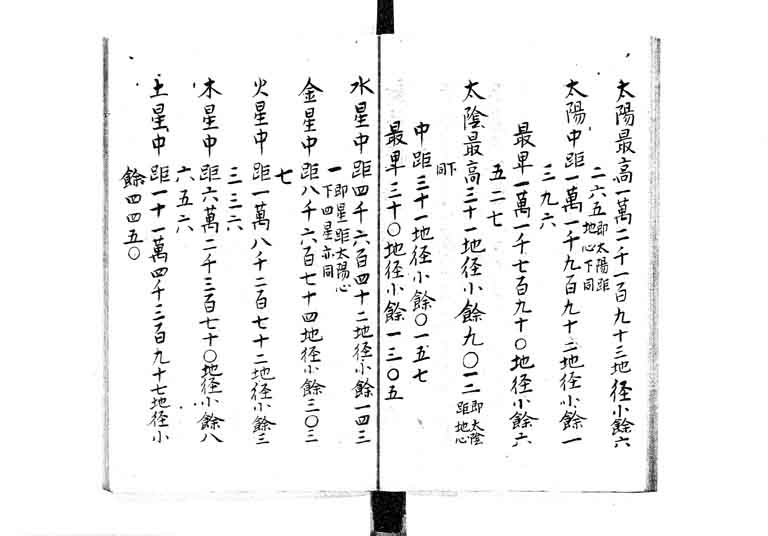 太陽最高一萬二千一百九十三地径小餘六
二六五即太陽距地心下同
太陽中距一萬一千九百九十二地径小餘一
三九六
最卑一萬一千七百九十〇地径小餘六
五二七
太陰最高三十一地径小餘九〇一二即太陰距地心
下同
中距三十一地径小餘〇一五七
最卑三十〇地径小餘一三〇五
水星中距四千六百四十二地径小餘一四三
一即星距太陽心下四星亦同
金星中距八千六百七十四地径小餘三〇三
七
火星中距一萬八千二百七十二地径小餘三
三三六
木星中距六萬二千三百七十〇地径小餘八
六五六
土星中距一十一萬四千三百九十七地径小
餘四四五〇